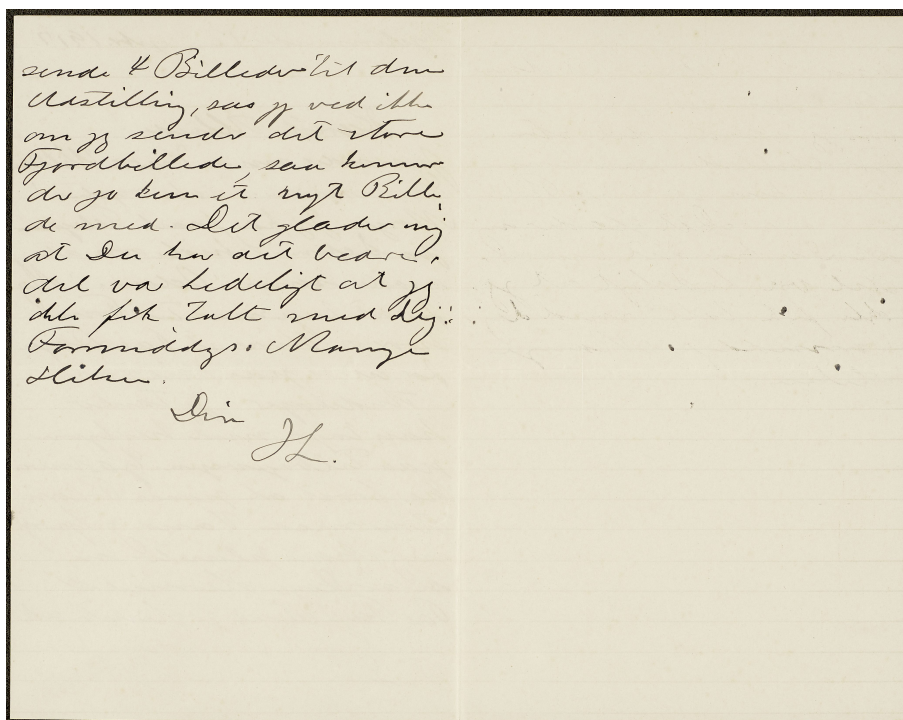 sende 4 Billeder til den
Udstilling, saa jeg ved ikke
om jeg sender det store
Fjordbillede, saa kommer
der jo kun et nyt Bille
de med. Det glæder mig
at Du har det bedre,
det var kedeligt at jeg
ikke fik talt med Dig i
Formiddags. Mange
Hilsner.
Din
JL.